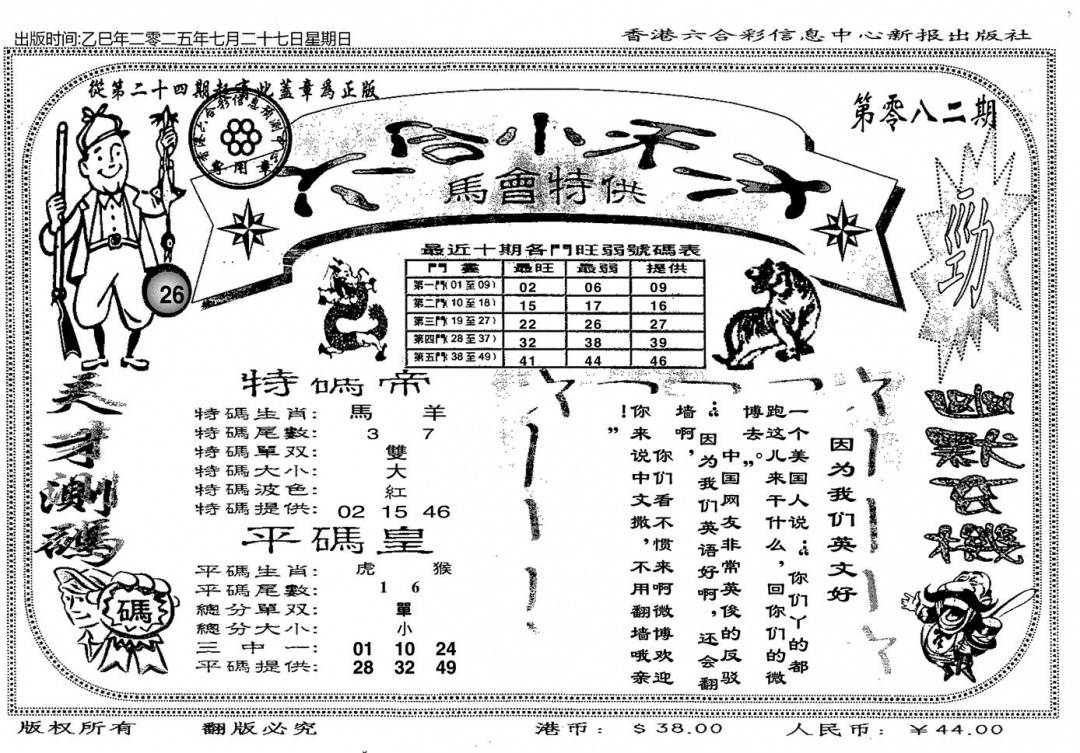 出版时间:乙巳年二零二五年七月二十七日星期日
香港六合彩信息中心新报出版社
從第二十四期起有此蓋章爲正版
第零八二期
專用章
六合小禾二才
馬會特供
勁
26
最近十期各門旺弱號碼表
門畫 最旺 最弱 提供
第一門(01至09) 02 06 09
第二門(10至18) 15 17 16
第三門(19至27) 22 26 27
第四門(28至37) 32 38 39
第五門(38至49) 41 44 46
天才測碼
碼
特碼帝
特碼生肖: 馬 羊
特碼尾數: 3 7
特碼單双: 雙
特碼大小: 大
特碼波色: 紅
特碼提供: 02 15 46
平碼皇
平碼生肖: 虎 猴
平碼尾數: 1 6
總分單双: 單
總分大小: 小
三中一: 01 10 24
平碼提供: 28 32 49
因为我们英文好
一个美国人说:“你们丫的都
跑这儿来干什么,回你们的微
博去。”
中国网友非常英俊的反驳
:“因为我们英语好啊,还会翻
墙啊,你们看不惯来啊微博欢迎
你来说中文撒,不用翻墙哦亲
!”
版权所有
翻版必究
港币: $38.00
人民币: ￥44.00